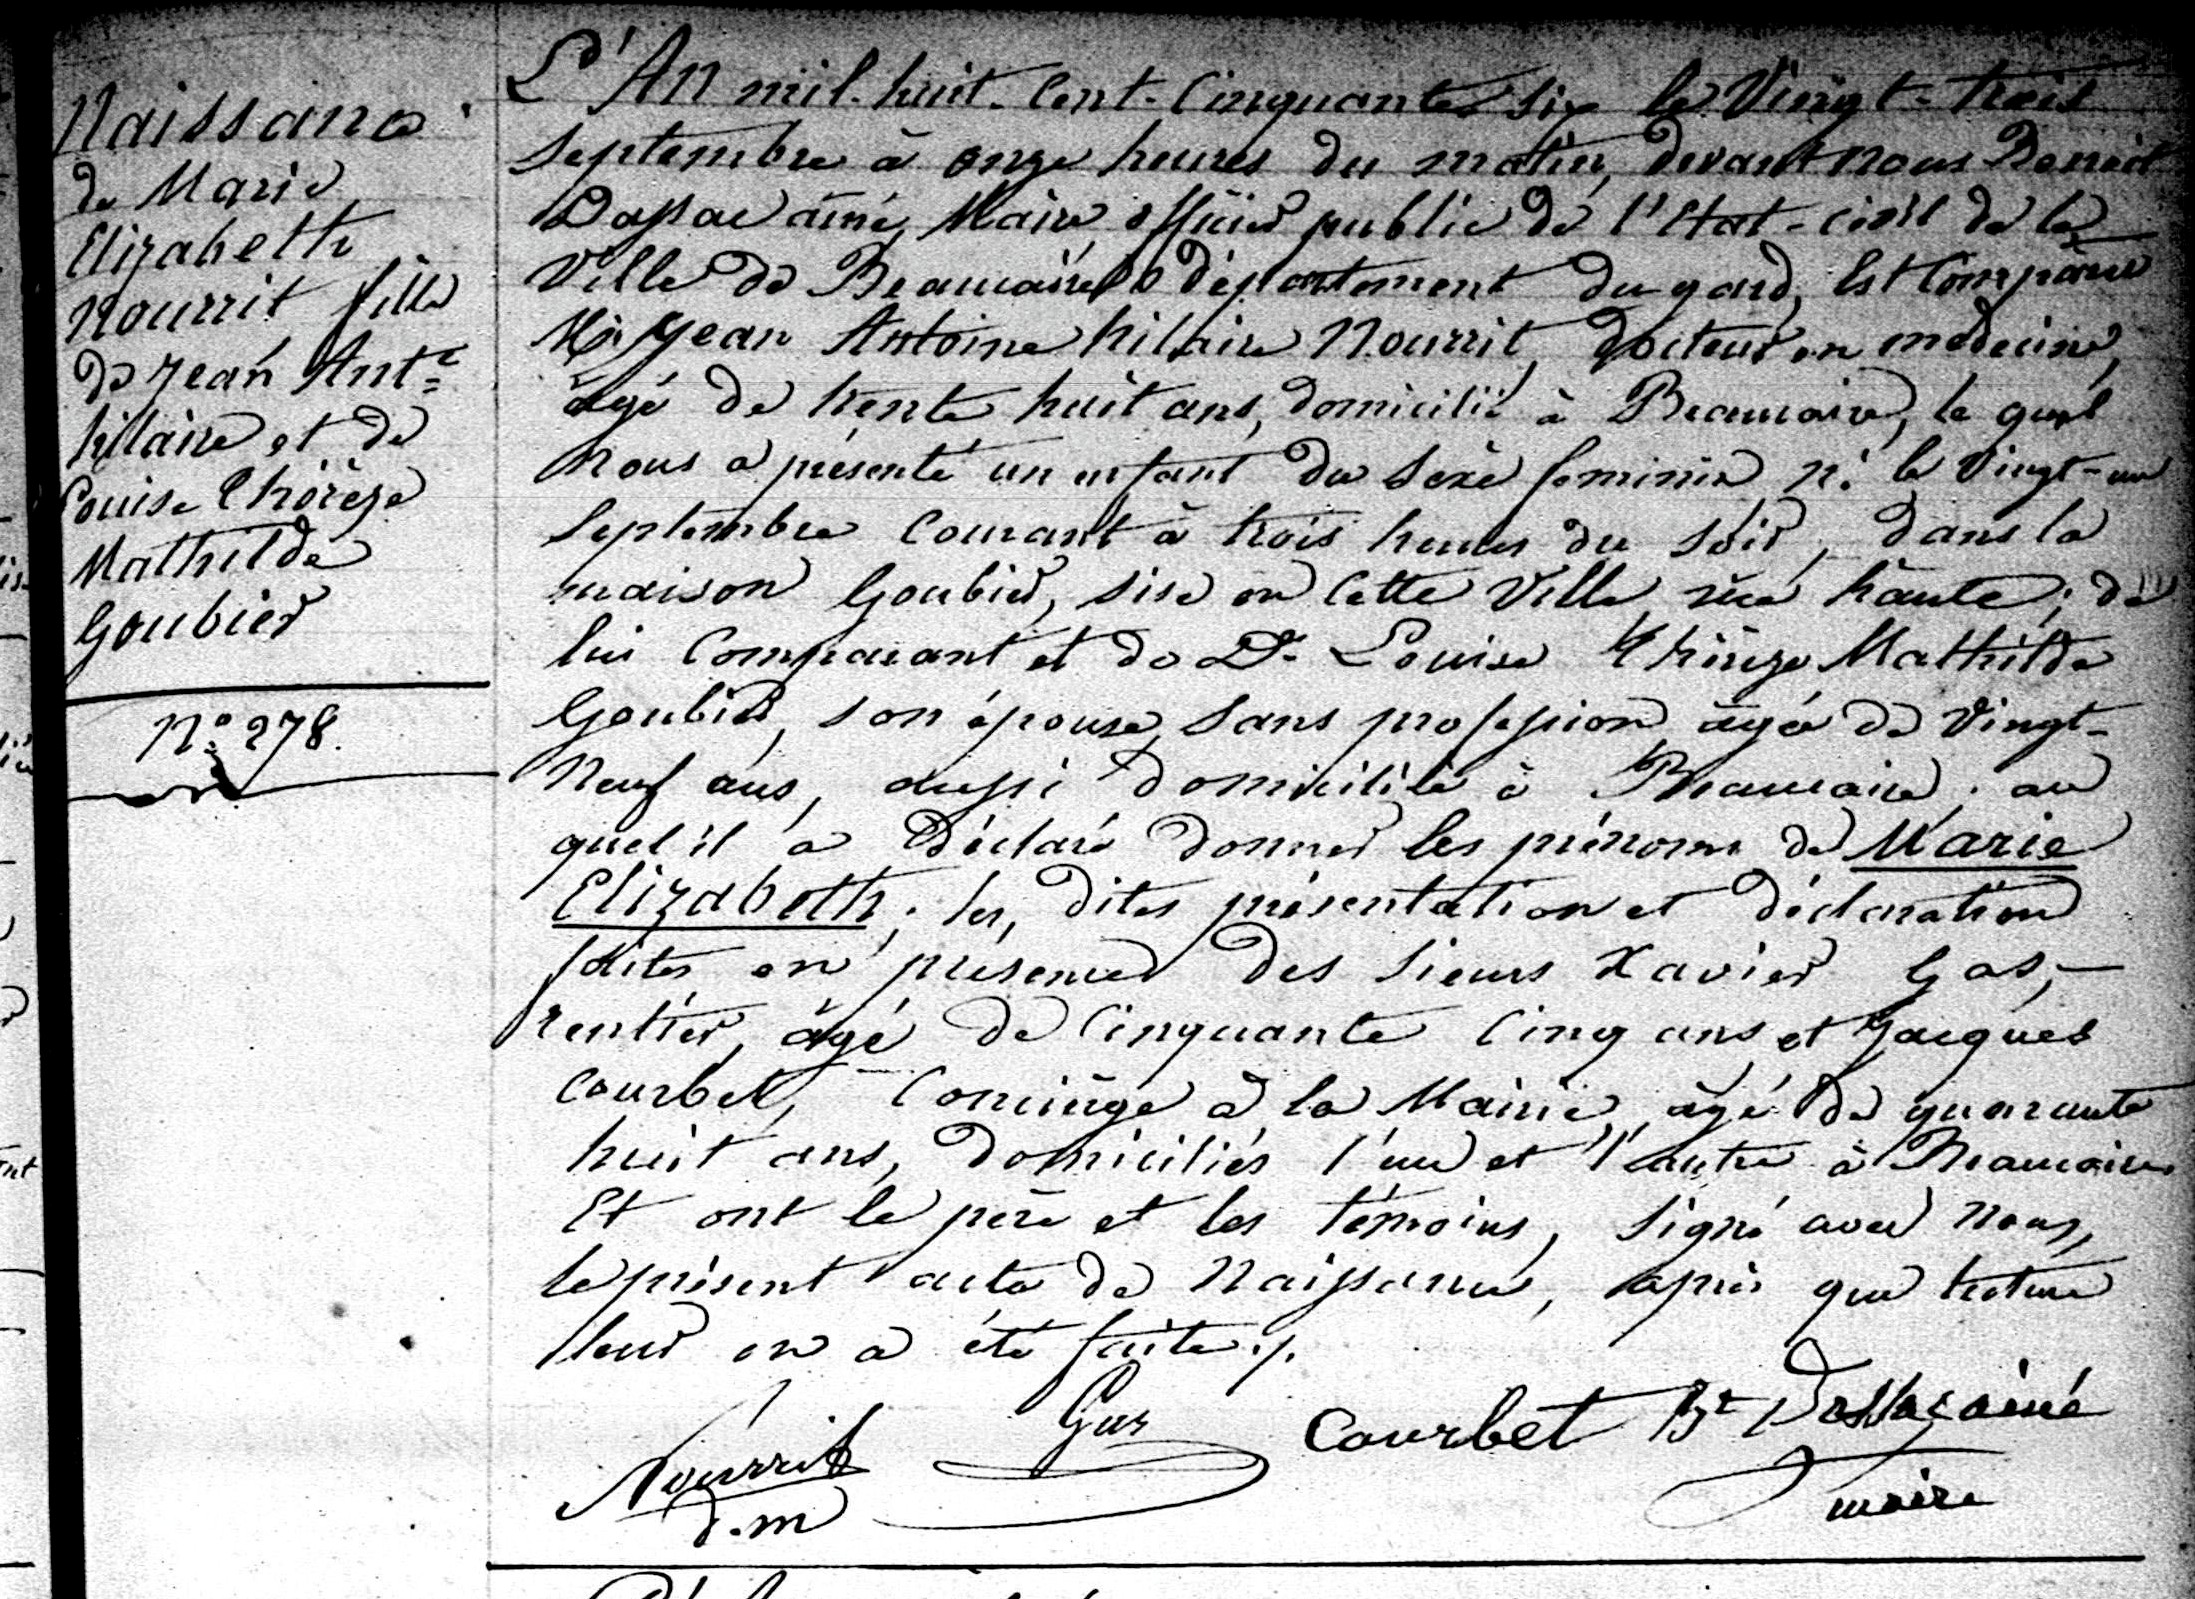 Naissance
de Marie
Elizabeth
Nourrit fille
de Jean Ant.e
hilaire et de
Louise Thérèze
Mathilde
Goubier
N.o 278.
L'An mil-huit-Cent-Cinquante six le Vingt-trois
Septembre à onze heures du matin, devant nous Benoit
Dassac ainé, Maire officier public de l'Etat-civil de la
Ville de Beaucaire département du gard, Est Comparu
Mr. Jean Antoine hilaire Nourrit, Docteur en médecine,
âgé de trente huit ans, domicilié à Beaucaire, le quel
nous a présenté un enfant du Sexe feminin né le Vingt-un
Septembre Courant à trois heures du soir, dans la
maison Goubier, sise en Cette Ville, rue haute; de
lui Comparant et de De. Louise Thérèze Mathilde
Goubier, son épouse, sans profession, âgée de Vingt-
Neuf ans, aussi domiciliée à Beaucaire; au
quel il a Déclaré donner les prénoms de Marie
Elizabeth; les, dites présentation et déclaration
faites en présence des Sieurs Xavier Gas,
rentier, âgé de Cinquante Cinq ans et Jacques
Courbet, Concièrge à la Mairie, âgé de quarante
huit ans, domiciliés l'un et l'autre à Beaucaire
Et ont le père et les témoins, signé avec nous,
le présent acte de Naissance, après que lecture
leur en a été faite ./.
Nourrit
d.m
Gas
Courbet
Bt Dassac ainé
maire